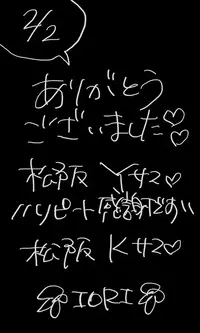 2/2
ありがとう
ございました♡♡
松阪 Y42♡
リピート感謝です!!
松阪 K42♡
IORI